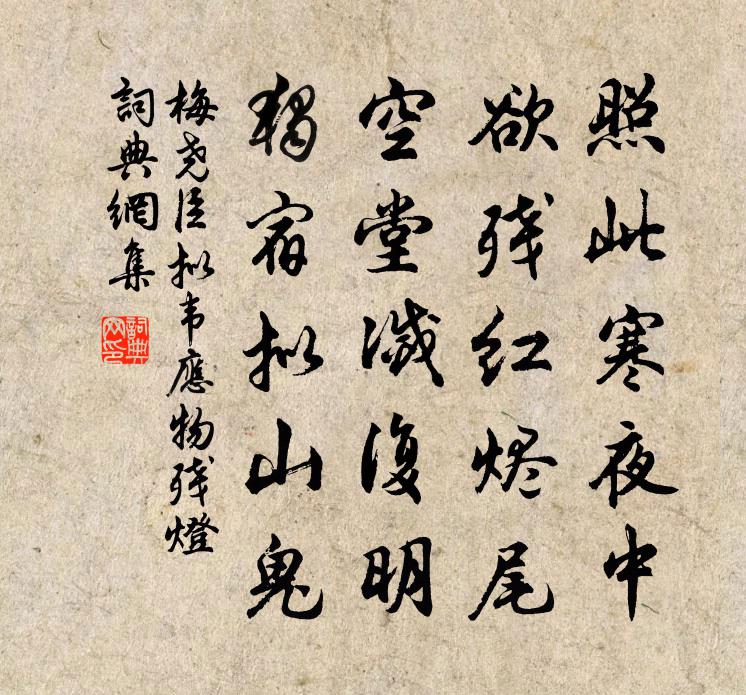 照此寒夜中
欲残红烬尾
空堂滅復明
独宿拟山鬼
梅尧臣拟韦應物残燈
詞典網集
詞典网印